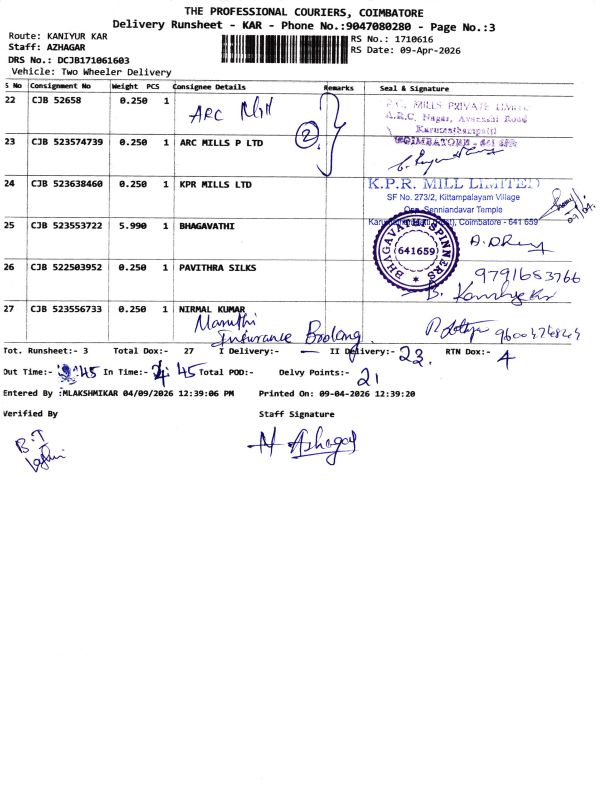 THE PROFESSIONAL COURIERS, COIMBATORE
Delivery Runsheet - KAR - Phone No.:9047080280 - Page No.:3
Route: KANIYUR KAR
RS No.: 1710616
Staff: AZHAGAR
RS Date: 09-Apr-2026
DRS No.: DCJB171061603
Vehicle: Two Wheeler Delivery
S No Consignment No Weight PCS Consignee Details Remarks Seal & Signature
22 CJB 52658 0.250 1 ARC Mill
MILLS PRIVATE
A.R.C. Nagar, Avanashi Road
23 CJB 523574739 0.250 1 ARC MILLS P LTD
2
24 CJB 523638460 0.250 1 KPR MILLS LTD
K.P.R. MILL LIMITED
SF No. 273/2, Kittampalayam Village
Opp. Senniandavar Temple
Coimbatore - 641 659
25 CJB 523553722 5.990 1 BHAGAVATHI
BHAGAVATHI SPINNERS
641659
26 CJB 522503952 0.250 1 PAVITHRA SILKS
9791683766
27 CJB 523556733 0.250 1 NIRMAL KUMAR
Maruthi
Insurance
Tot. Runsheet:- 3 Total Dox:- 27 I Delivery:- — II Delivery:- 23 RTN Dox:- 4
Out Time:- 45 In Time:- 45 Total POD:- Delvy Points:- 21
Entered By :MLAKSHMIKAR 04/09/2026 12:39:06 PM Printed On: 09-04-2026 12:39:20
Verified By Staff Signature
B.T
Azhagar